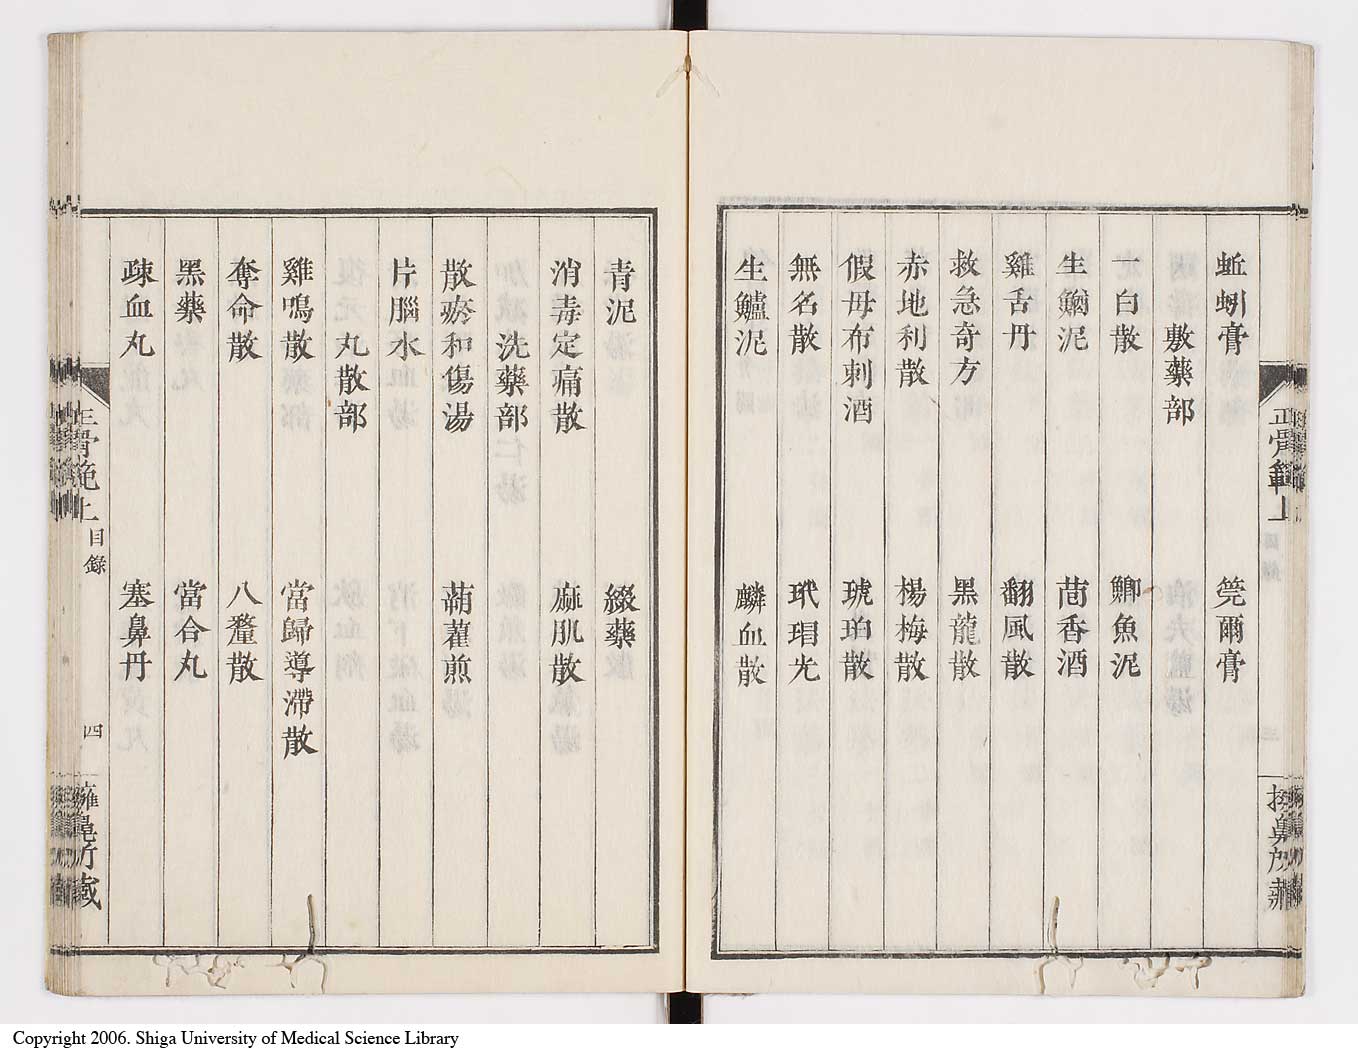 蚯蚓膏 筦爾膏
敷藥部
一白散 鯽魚泥
生鰌泥 茴香酒
雞舌丹 翻風散
救急奇方 黑龍散
赤地利散 楊梅散
假母布刺酒 琥珀散
無名散 玳瑁光
生鱸泥 麟血散
正骨範上
青泥 綴藥
消毒定痛散 麻肌散
洗藥部
散瘀和傷湯 蒴藋煎
片腦水
丸散部
雞鳴散 當歸導滯散
奪命散 八釐散
黑藥 當合丸
疎血丸 塞鼻丹
正骨範上 目錄 四
Copyright 2006. Shiga University of Medical Science Library